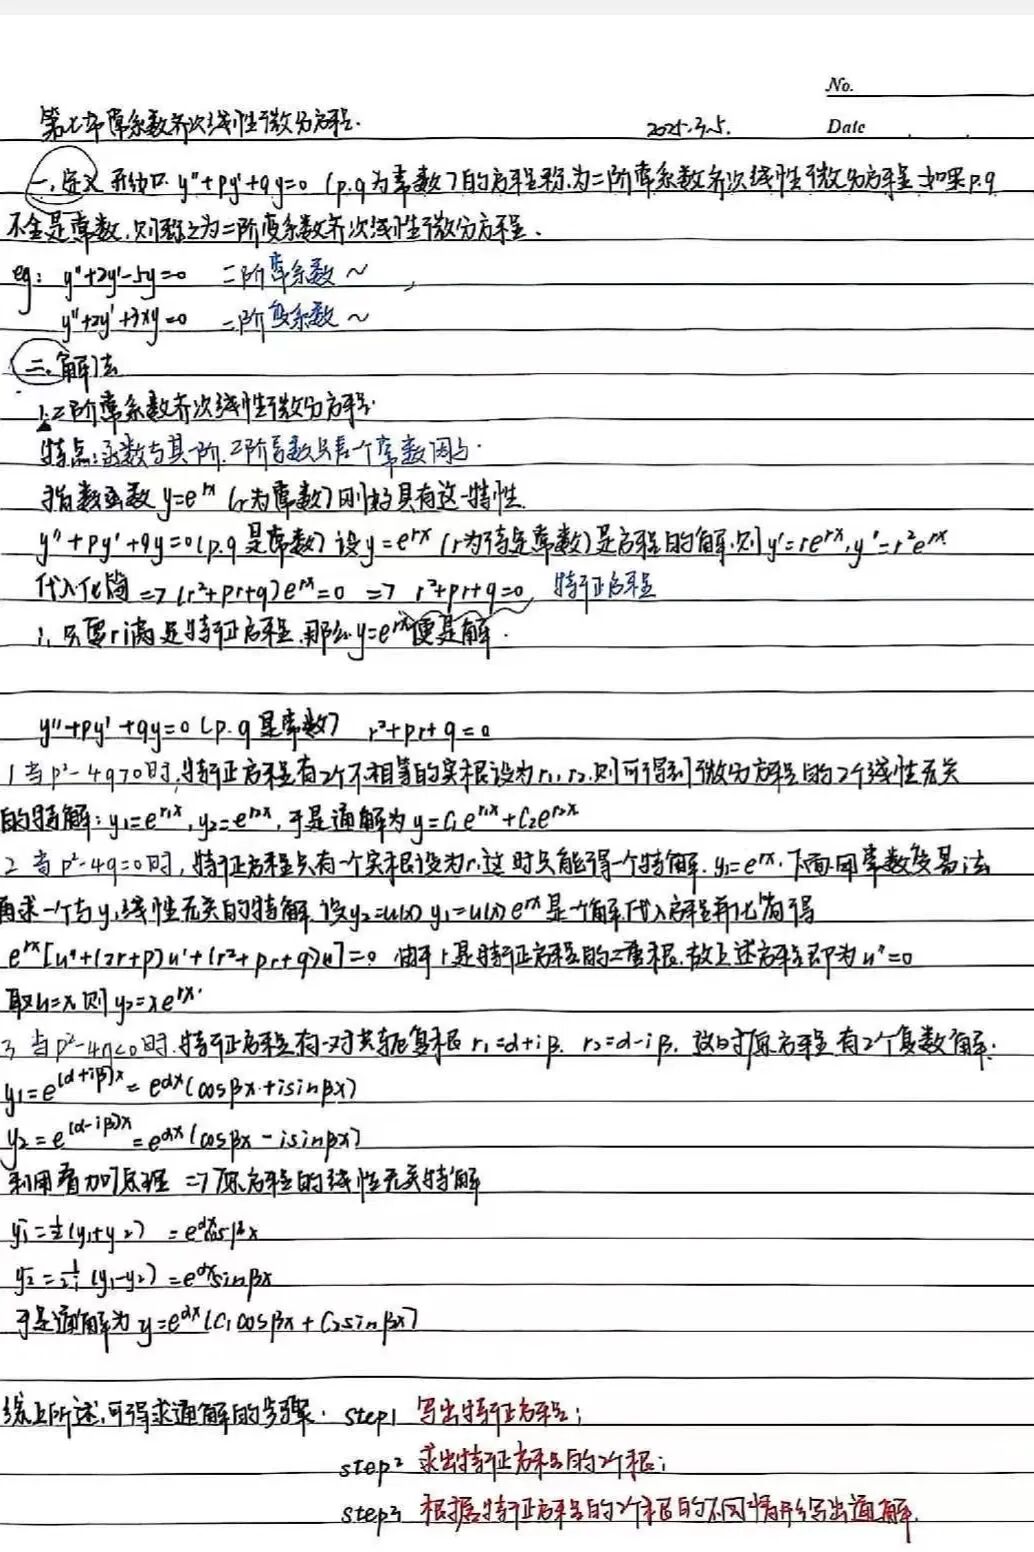 No.
第七节常系数齐次线性微分方程. 2025.3.5. Date
一、定义 形如 y''+py'+qy=0 (p.q为常数)的方程称为二阶常系数齐次线性微分方程 如果p.q
不全是常数,则称之为二阶变系数齐次线性微分方程.
eg: y''+2y'-5y=0 二阶常系数~
y''+2y'+3xy=0 二阶变系数~
二、解法
1.二阶常系数齐次线性微分方程.
特点:函数与其一阶.二阶导数只差一个常数因子.
指数函数 y=e^{rx} (r为常数)刚好具有这一特性.
y''+py'+qy=0(p.q是常数) 设y=e^{rx} (r为待定常数)是方程的解,则y'=re^{rx},y''=r²e^{rx}
代入化简 => (r²+pr+q)e^{rx}=0 => r²+pr+q=0, 特征方程
只要r满足特征方程,那么y=e^{rx}便是解.
y''+py'+qy=0 (p.q是常数) r²+pr+q=0
1 当p²-4q>0时,特征方程有2个不相等的实根设为r₁,r₂.则可得到微分方程的2个线性无关
的特解:y₁=e^{r₁x},y₂=e^{r₂x},于是通解为y=C₁e^{r₁x}+C₂e^{r₂x}
2 当p²-4q=0时,特征方程只有一个实根设为r.这时只能得一个特解.y₁=e^{rx}.下面用常数变易法
再求一个与y₁线性无关的特解.设y₂=u(x)y₁=u(x)e^{rx}是一个解.代入方程并化简得
e^{rx}[u''+(2r+p)u'+(r²+pr+q)u]=0 由于r是特征方程的二重根,故上述方程即为u''=0
取u=x,则y₂=xe^{rx}.
3 当p²-4q<0时,特征方程有一对共轭复根 r₁=α+iβ. r₂=α-iβ. 这时原方程有2个复数解:
y₁=e^{(α+iβ)x}=e^{αx}(cosβx+isinβx)
y₂=e^{(α-iβ)x}=e^{αx}(cosβx-isinβx)
利用叠加原理 => 原方程的线性无关特解
ȳ₁=½(y₁+y₂) =e^{αx}cosβx
ȳ₂=1/2i (y₁-y₂)=e^{αx}sinβx
于是通解为 y=e^{αx}(C₁cosβx+C₂sinβx)
综上所述,可得求通解的步骤. step1 写出特征方程;
step2 求出特征方程的2个根;
step3 根据特征方程的2个根的不同情形写出通解.